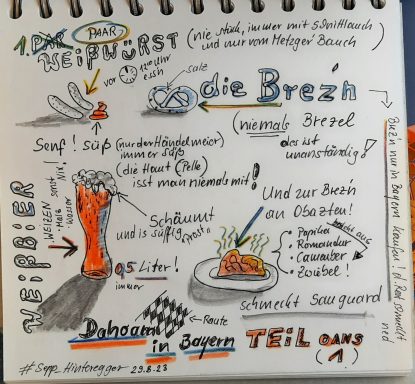 1. PAR PAAR
WEIßWÜRST
(nie stück, immer mit Schnittlauch
und nur vom Metzger Bauch
vor 12⁰⁰ Uhr
essn
salz
die Brez'n
(niemals Brezel
des ist
unanständig!)
Brez'n nur in Bayern kaufen! d'Rest schmeckt
ned
Senf! süß (nur der Händelmeier)
immer süß
(die Haut (Pelle)
isst man niemals mit!
WEIßBIER
"WEIZEN sonst nix!
- Malz
- Wasser
Schäumt
und is süffig "Prost"
0,5 Liter!
immer
Und zur Brez'n
an Obazten!
• Paprika
• Romandur
• Camenber
• Zwiebel!
schmeckt Sauguard
Dahoam
in Bayern
Raute
TEIL OANS
(1)
#Sepp Hinteregger 29.8.23